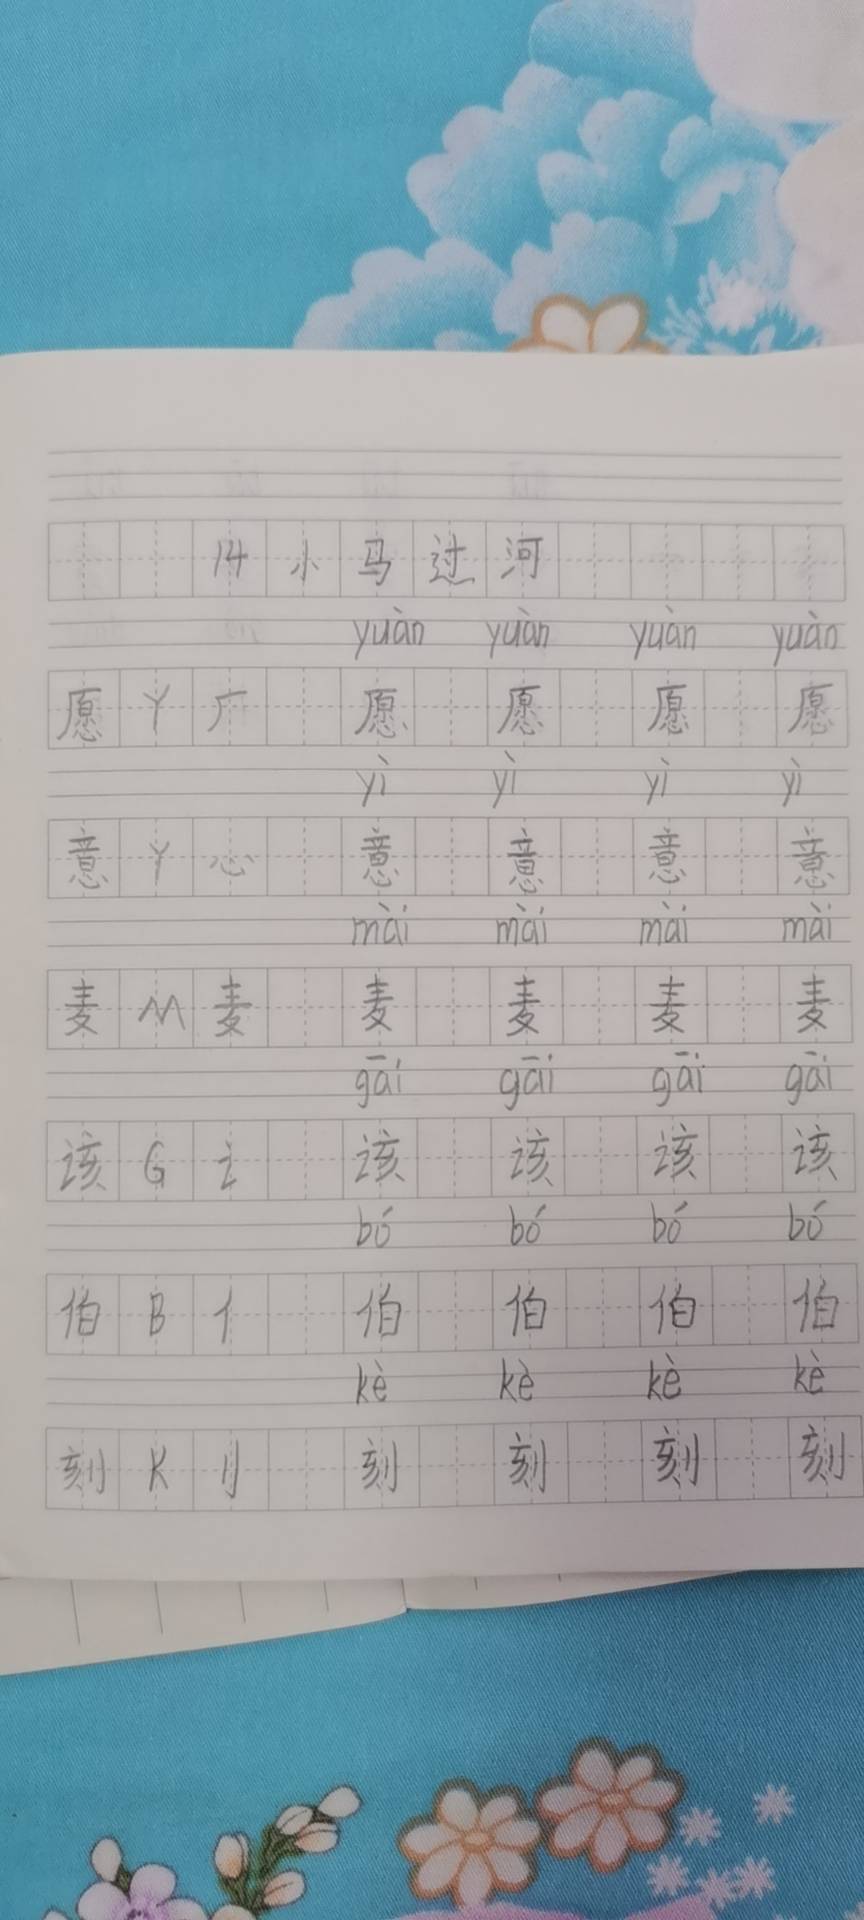 14 小马过河
yuàn yuàn yuàn yuàn
愿 Y 厂 愿 愿 愿 愿
yì yì yì yì
意 Y 心 意 意 意 意
mài mài mài mài
麦 M 麦 麦 麦 麦 麦
gāi gāi gāi gāi
该 G 讠 该 该 该 该
bó bó bó bó
伯 B 亻 伯 伯 伯 伯
kè kè kè kè
刻 K 刂 刻 刻 刻 刻